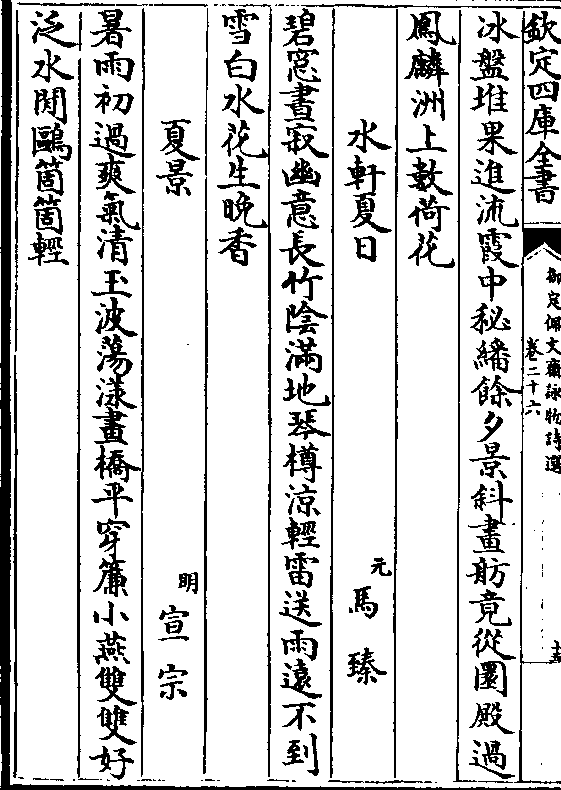 欽定四庫全書
御定佩文齋詠物詩選
卷二十六
十五
冰盤堆果進流霞中秘繙餘夕景斜畫舫竟從圜殿過
鳳麟洲上數荷花
水軒夏日
元
馬臻
碧窓晝寂幽意長竹陰滿地琴樽涼輕雷送雨遠不到
雪白水花生晚香
夏景
明
宣宗
暑雨初過爽氣清玉波蕩漾畫橋平穿簾小燕雙雙好
泛水閒鷗箇箇輕